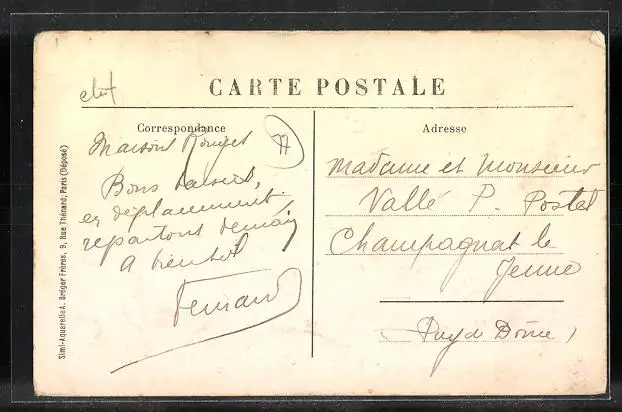 CARTE POSTALE
Correspondance
Maison Rouges
77
Bons baisers,
en déplacement
repartons demain
A bientôt
Fernand
Adresse
Madame et Monsieur
Vallé P. Postes
Champagnat le
Jeune
(Puy de Dôme)
Simi-Aquarelle A. Bréger Frères, 9, Rue Thénard, Paris (Déposé)